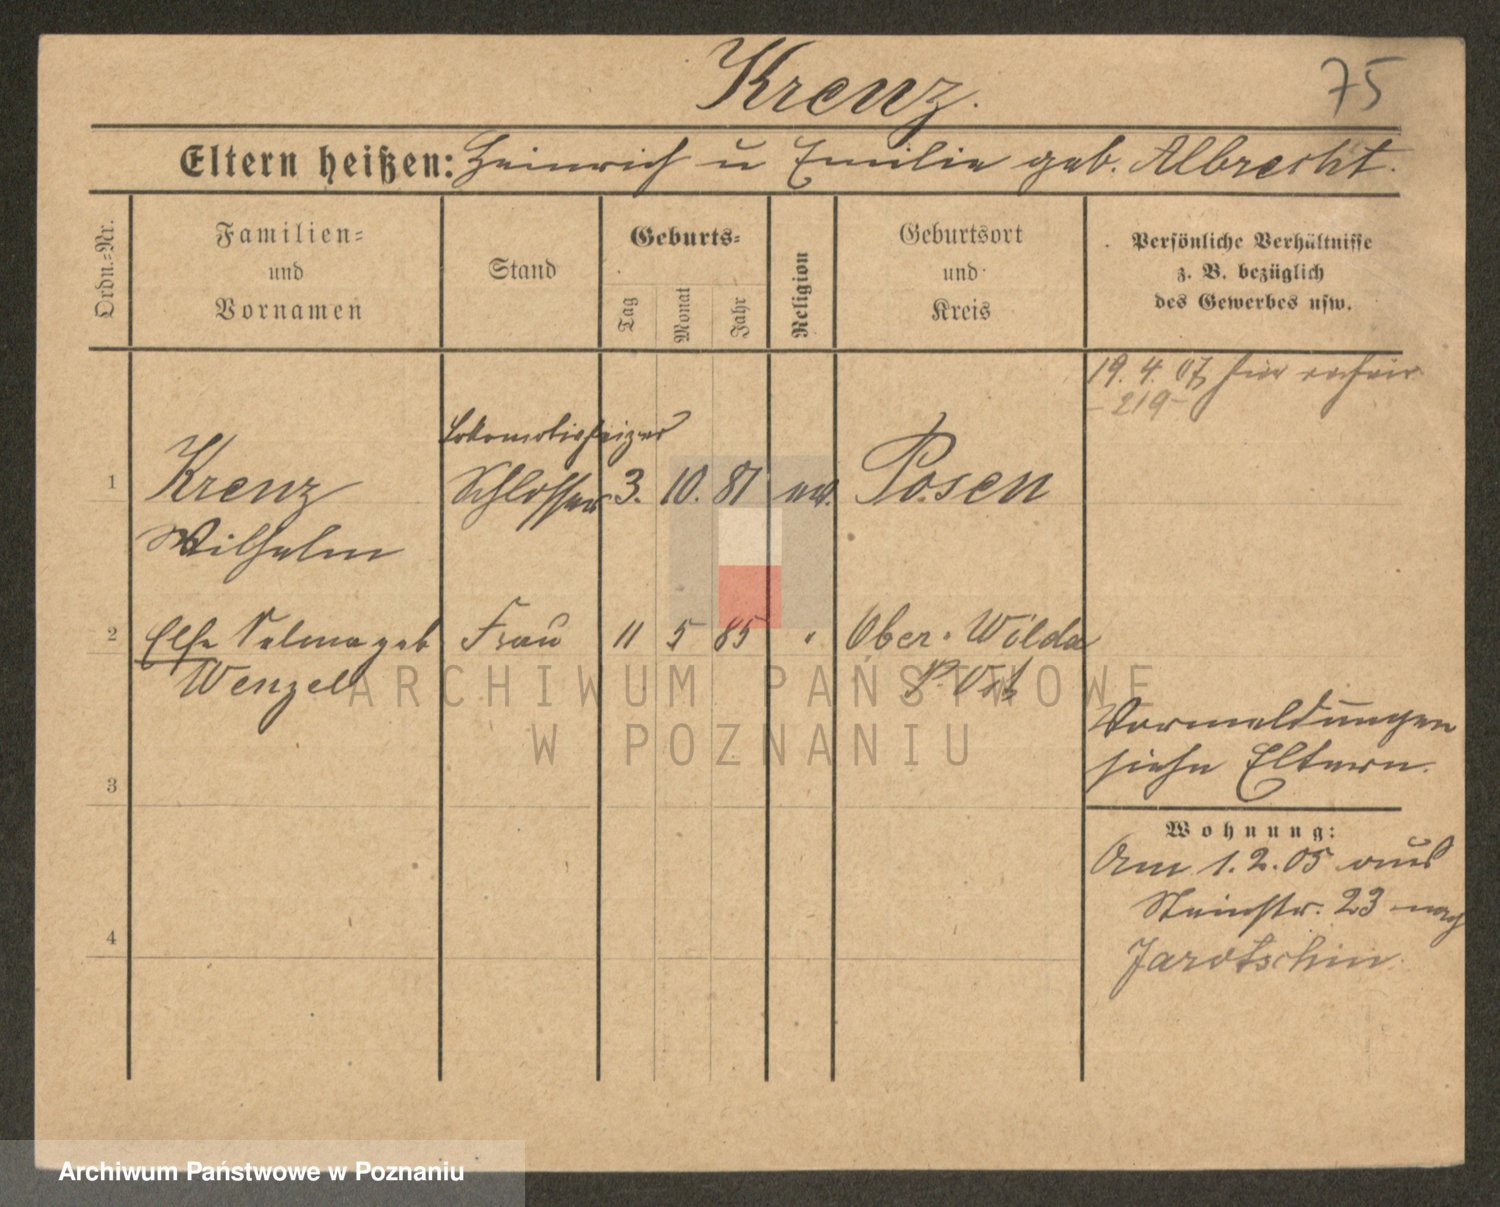 Krenz.
75
Eltern heißen: Heinrich u Emilie geb. Albrecht.
Ordn.=Nr.
Familien=
und
Vornamen
Stand
Geburts=
Tag
Monat
Jahr
Religion
Geburtsort
und
Kreis
Persönliche Verhältnisse
z. B. bezüglich
des Gewerbes usw.
19. 4. 07 hier
- 219 -
Lokomotivheizer
1 Krenz Schlosser 3. 10. 81 ev. Posen
Wilhelm
2 Else Selma geb Frau 11 5 85 " Ober-Wilda
Wenzel P. Ost
Vormeldungen
siehe Eltern.
3
Wohnung:
Am 1.2.05 aus
Steinstr. 23 nach
4
Jarotschin.
ARCHIWUM PAŃSTWOWE
W POZNANIU
Archiwum Państwowe w Poznaniu